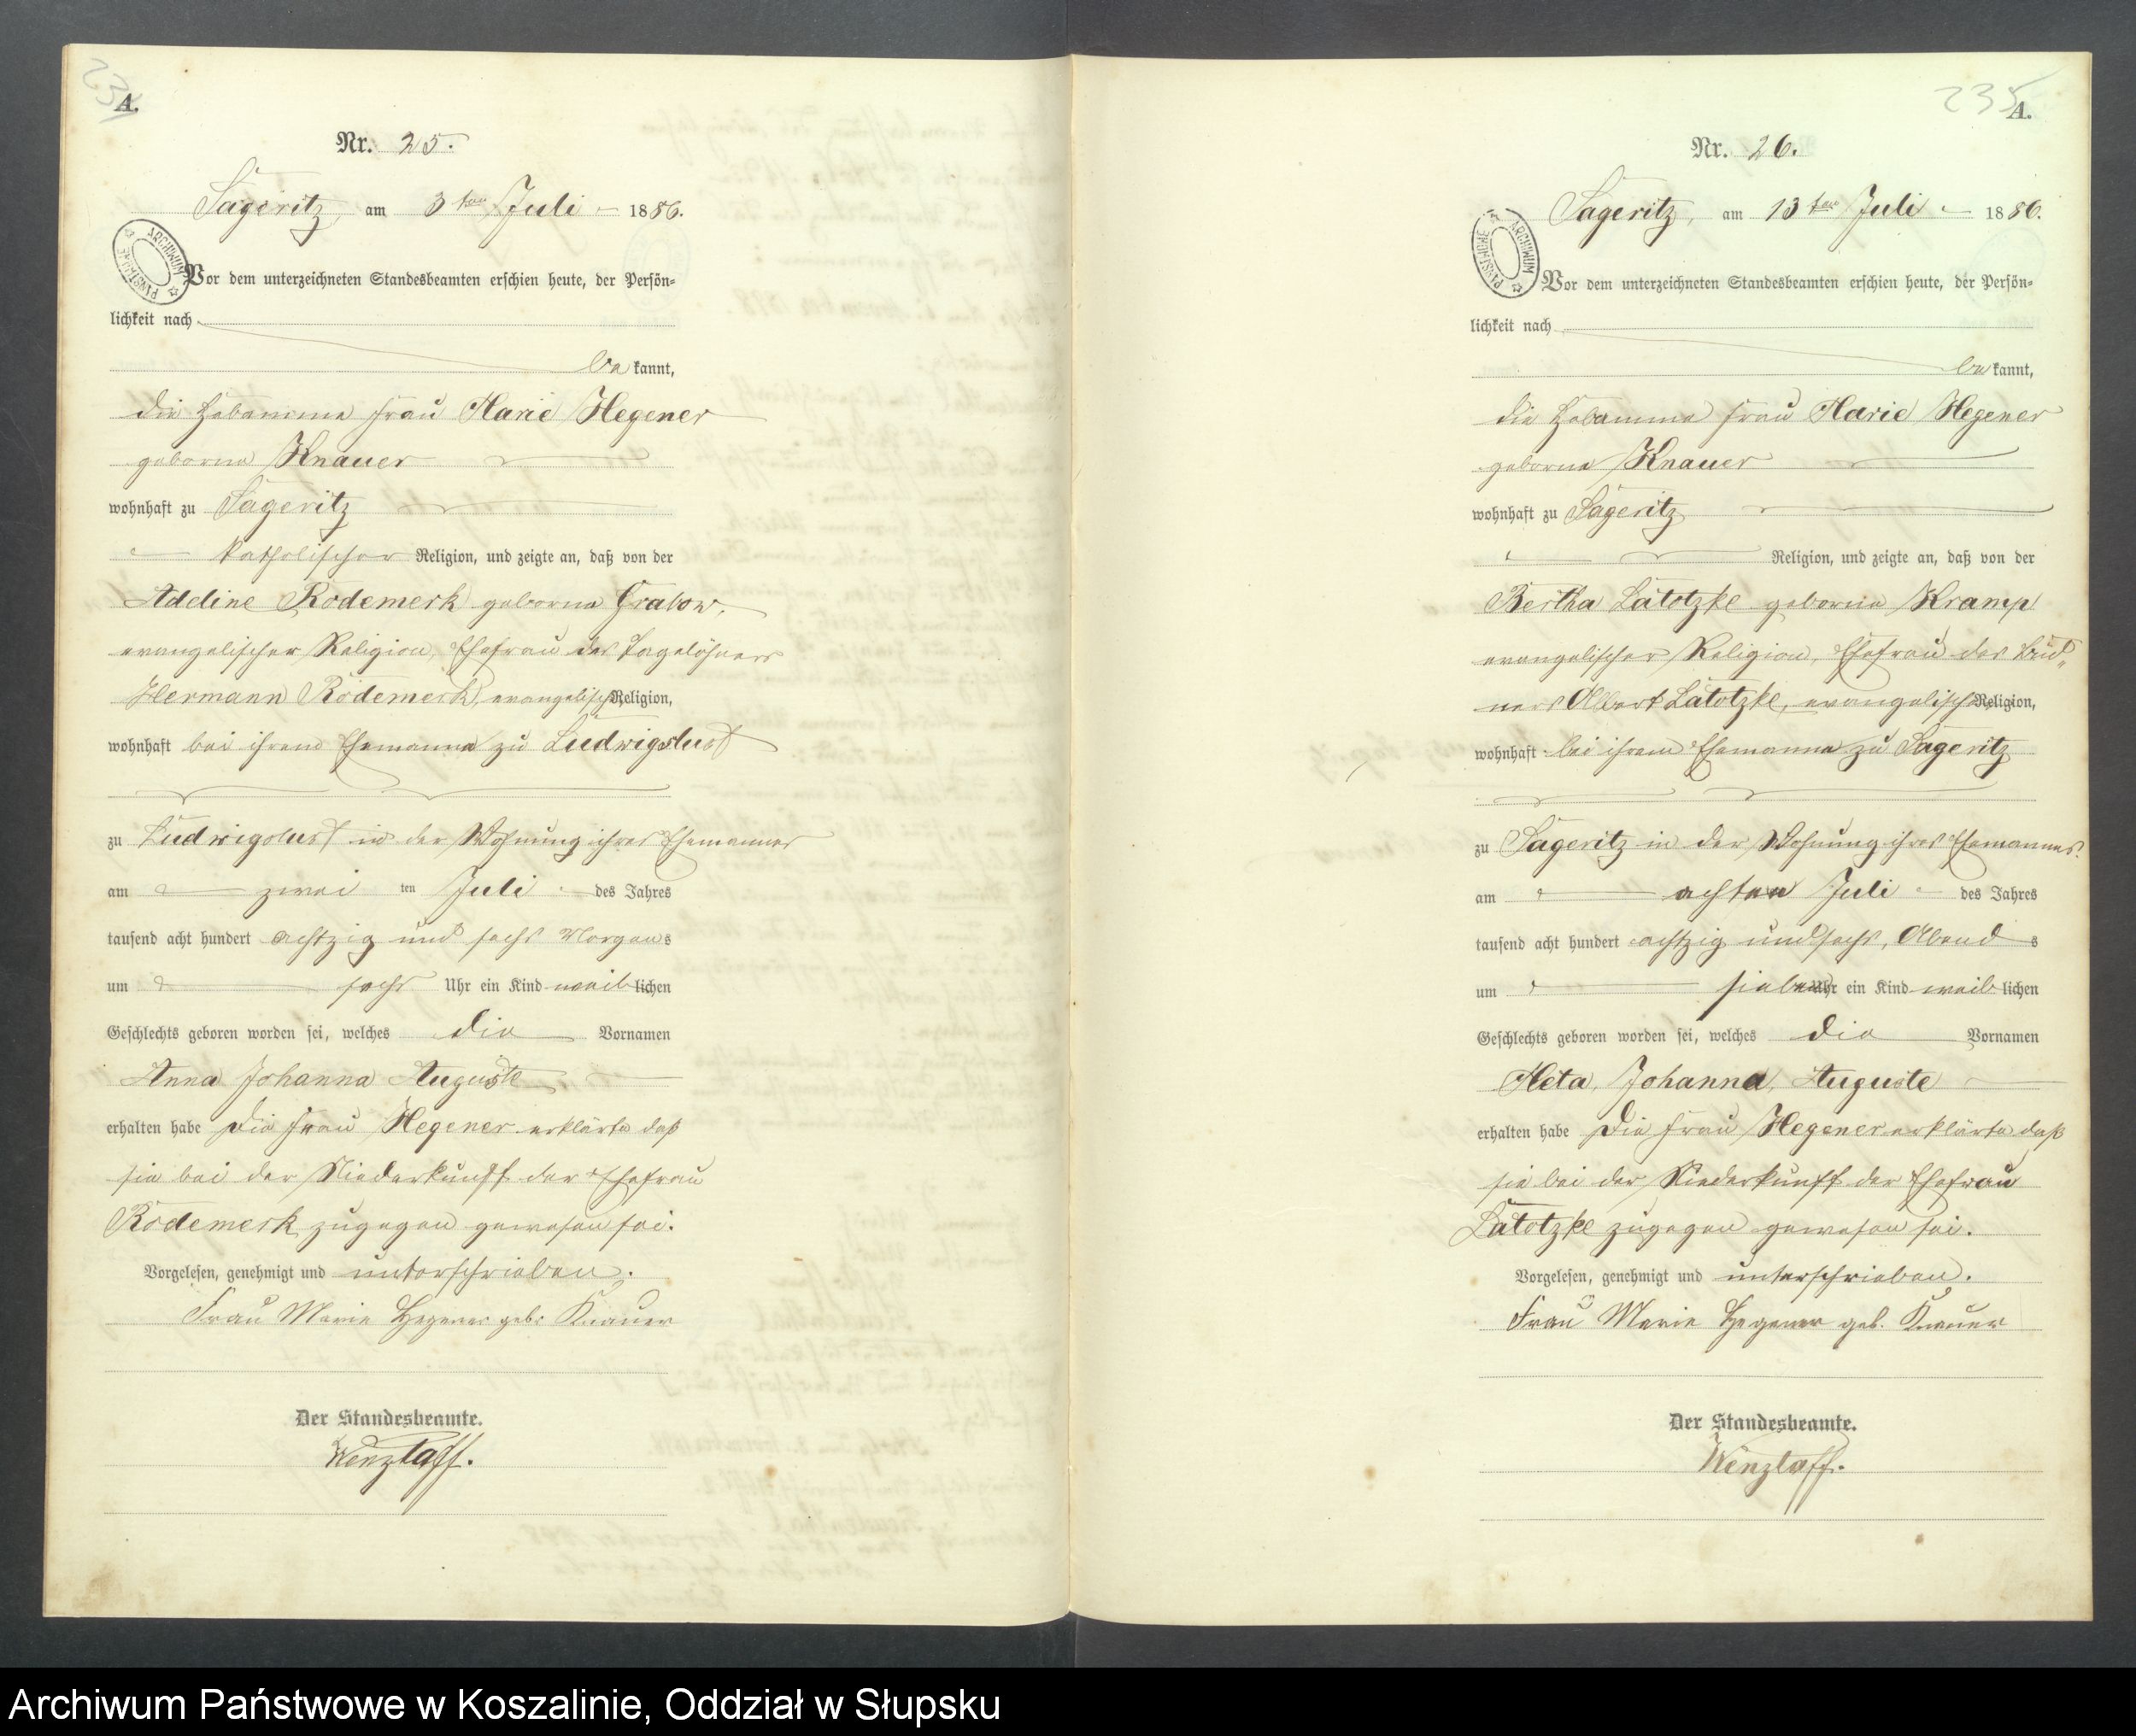 234
A.
Nr. 25.
Sageritz, am 3ten Juli 1886.
ARCHIWUM PAŃSTWOWE
Vor dem unterzeichneten Standesbeamten erschien heute, der Persön=
lichkeit nach
be kannt,
die Hebamme Frau Marie Hegener
geborne Knauer
wohnhaft zu Sageritz
katholischer Religion, und zeigte an, daß von der
Adeline Rodemerk geborne Grabow,
evangelischer Religion, Ehefrau des Tagelöhners
Hermann Rodemerk, evangelischer Religion,
wohnhaft bei ihrem Ehemanne zu Ludwigslust
zu Ludwigslust in der Wohnung ihres Ehemannes
am zwei ten Juli des Jahres
tausend acht hundert achtzig und sechs Morgens
um sechs Uhr ein Kind weiblichen
Geschlechts geboren worden sei, welches die Vornamen
Anna Johanna Auguste
erhalten habe Die Frau Hegener erklärte daß
sie bei der Niederkunft der Ehefrau
Rodemerk zugegen gewesen sei.
Vorgelesen, genehmigt und unterschrieben.
Frau Marie Hegener geb. Knauer
Der Standesbeamte.
Wenzlaff.
235
A.
Nr. 26.
Sageritz, am 13ten Juli 1886.
ARCHIWUM PAŃSTWOWE
Vor dem unterzeichneten Standesbeamten erschien heute, der Persön=
lichkeit nach
be kannt,
die Hebamme Frau Marie Hegener
geborne Knauer
wohnhaft zu Sageritz
Religion, und zeigte an, daß von der
Bertha Latotzke geborne Kramp
evangelischer Religion, Ehefrau des Büd„
ners Albert Latotzke, evangelischer Religion,
wohnhaft bei ihrem Ehemanne zu Sageritz
zu Sageritz in der Wohnung ihres Ehemannes.
am achten Juli des Jahres
tausend acht hundert achtzig und sechs, Abends
um sieben Uhr ein Kind weiblichen
Geschlechts geboren worden sei, welches die Vornamen
Meta, Johanna, Auguste
erhalten habe Die Frau Hegener erklärte daß
sie bei der Niederkunft der Ehefrau
Latotzke zugegen gewesen sei.
Vorgelesen, genehmigt und unterschrieben.
Frau Marie Hegener geb. Knauer
Der Standesbeamte.
Wenzlaff.
Archiwum Państwowe w Koszalinie, Oddział w Słupsku